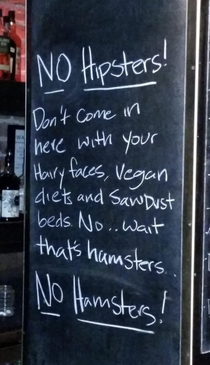 NO Hipsters!
Don't come in
here with your
Hairy faces, Vegan
diets and SawDust
beds. No.. wait
that's hamsters..
NO Hamsters!